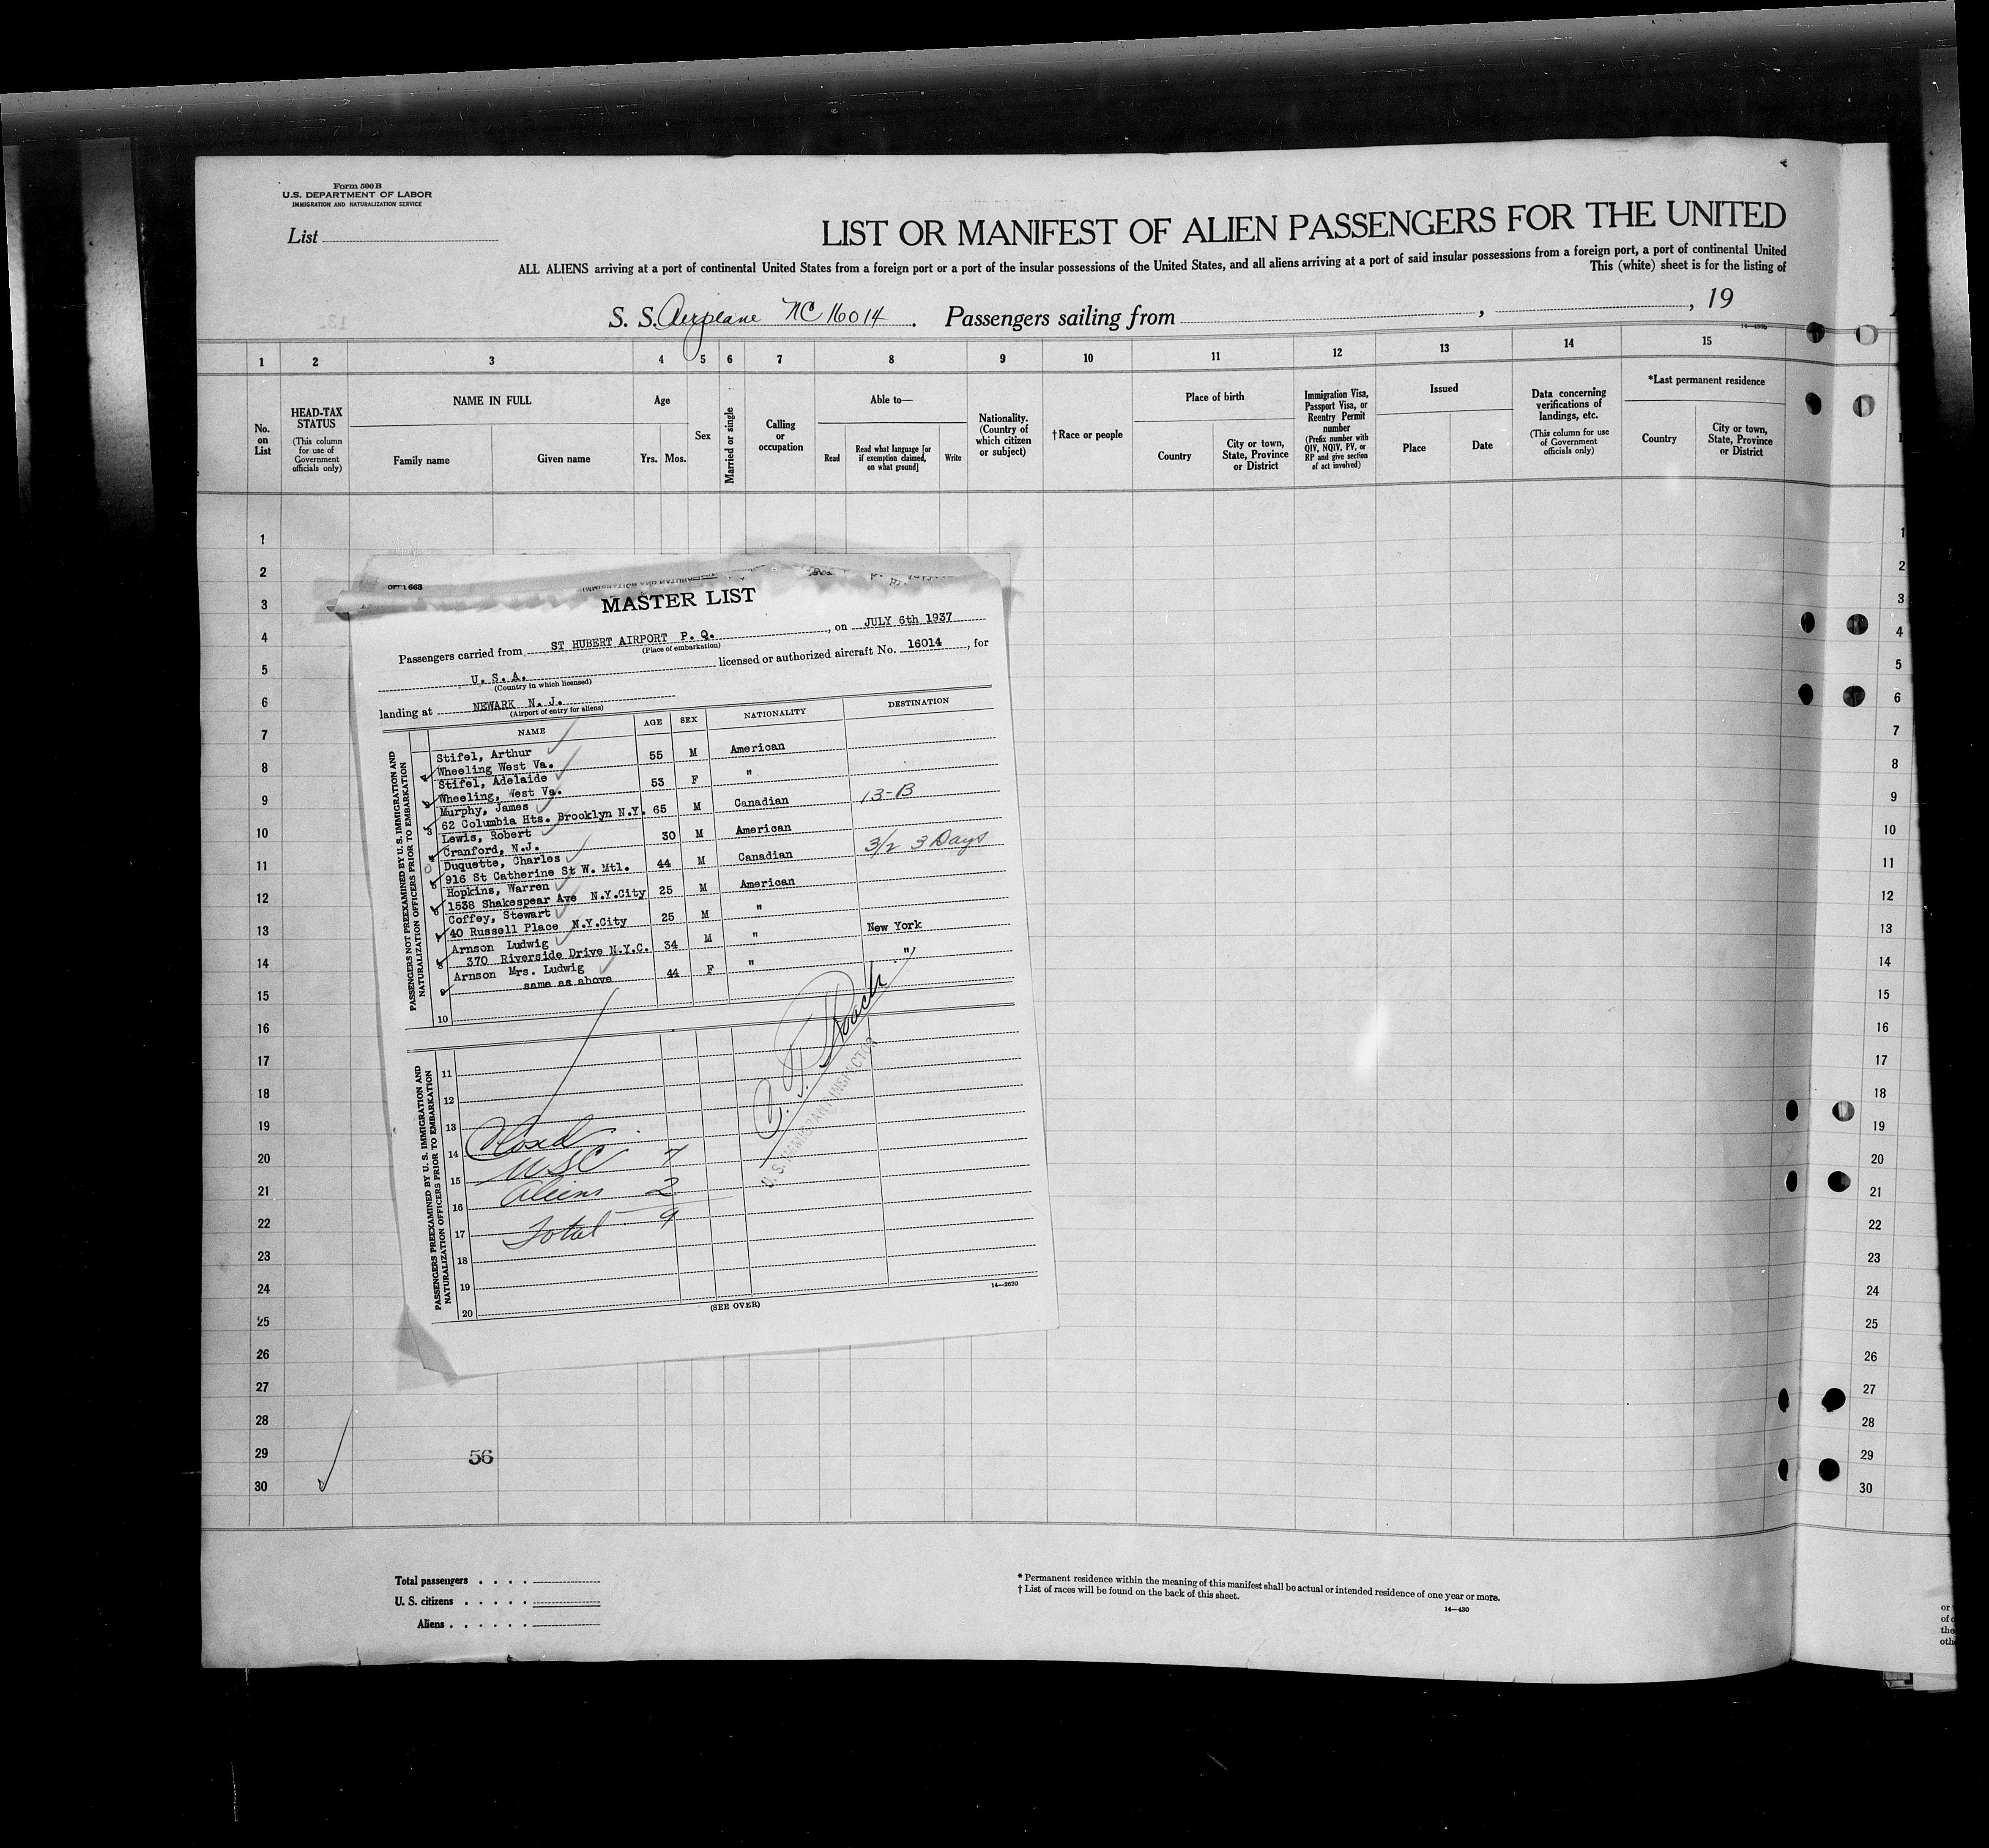 Form 500 B
U.S. DEPARTMENT OF LABOR
IMMIGRATION AND NATURALIZATION SERVICE
List
LIST OR MANIFEST OF ALIEN PASSENGERS FOR THE UNITED
ALL ALIENS arriving at a port of continental United States from a foreign port or a port of the insular possessions of the United States, and all aliens arriving at a port of said insular possessions from a foreign port, a port of continental United
This (white) sheet is for the listing of
S. S. Airplane NC 16014. Passengers sailing from , , 19
14—430b
1 2 3 4 5 6 7 8 9 10 11 12 13 14 15
No. on List
HEAD-TAX STATUS
(This column for use of Government officials only)
NAME IN FULL
Family name
Given name
Age
Yrs. Mos.
Sex
Married or single
Calling or occupation
Able to—
Read
Read what language [or if exemption claimed, on what ground]
Write
Nationality. (Country of which citizen or subject)
†Race or people
Place of birth
Country
City or town, State, Province or District
Immigration Visa, Passport Visa, or Reentry Permit number
(Prefix number with QIV, NQIV, PV, or RP and give section of act involved)
Issued
Place
Date
Data concerning verifications of landings, etc.
(This column for use of Government officials only)
*Last permanent residence
Country
City or town, State, Province or District
1
2
3
4
5
6
7
8
9
10
11
12
13
14
15
16
17
18
19
20
21
22
23
24
25
26
27
28
29
30
663
MASTER LIST
Passengers carried from ST HUBERT AIRPORT P. Q. , on JULY 6th 1937
(Place of embarkation)
U. S. A. licensed or authorized aircraft No. 16014 , for
(Country in which licensed)
landing at NEWARK N. J.
(Airport of entry for aliens)
NAME AGE SEX NATIONALITY DESTINATION
PASSENGERS NOT PREEXAMINED BY U. S. IMMIGRATION AND NATURALIZATION OFFICERS PRIOR TO EMBARKATION
Stifel, Arthur 55 M American
Wheeling West Va.
Stifel, Adelaide 53 F "
Wheeling, West Va.
Murphy, James 65 M Canadian 13-B
62 Columbia Hts. Brooklyn N.Y.
Lewis, Robert 30 M American
Cranford, N.J.
Duquette, Charles 44 M Canadian 3/2 3 Days
916 St Catherine St W. Mtl.
Hopkins, Warren 25 M American
1538 Shakespear Ave N.Y.City
Coffey, Stewart 25 M "
40 Russell Place N.Y.City
Arnson Ludwig 34 M " New York
370 Riverside Drive N.Y.C.
Arnson Mrs. Ludwig 44 F " "
same as above
10
PASSENGERS PREEXAMINED BY U. S. IMMIGRATION AND NATURALIZATION OFFICERS PRIOR TO EMBARKATION
11
12
13
14
15
16
17
18
19
20
Closed
USC 7
Aliens 2
Total 9
U. S. IMMIGRANT INSPECTOR
14—2620
(SEE OVER)
56
Total passengers
U. S. citizens
Aliens
* Permanent residence within the meaning of this manifest shall be actual or intended residence of one year or more.
† List of races will be found on the back of this sheet.
14—430
1
2
3
4
5
6
7
8
9
10
11
12
13
14
15
16
17
18
19
20
21
22
23
24
25
26
27
28
29
30